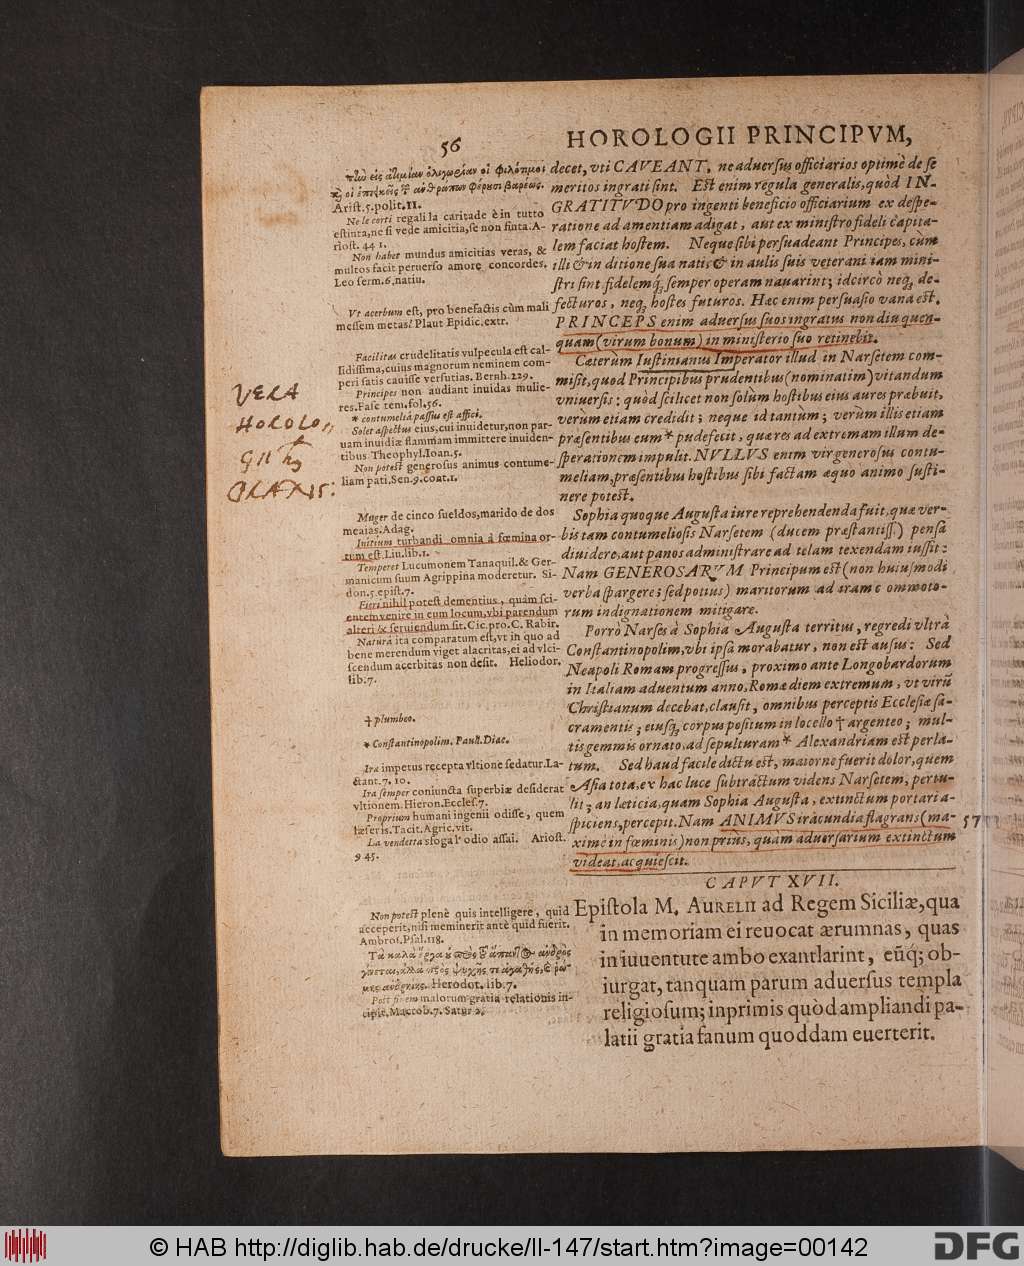 56
HOROLOGII PRINCIPVM,
decet, vti CAVEANT, ne aduersus officiarios optimè de se
meritos ingrati sint. Est enim regula generalis, quòd IN-
GRATITVDO pro ingenti beneficio officiarium ex despe-
ratione ad amentiam adigat, aut ex ministro fideli capita-
lem faciat hostem. Neque sibi persuadeant Principes, cùm
illi & in ditione sua nati, & in aulis suis veterani iam mini-
stri sint fidelemq́; semper operam nauarint; idcircò neq; de-
fecturos, neq; hostes futuros. Hæc enim persuasio vana est.
PRINCEPS enim aduersus suos ingratus non diu quen-
quam (virum bonum) in ministerio suo retinebit.
Cæterùm Iustinianus Imperator illud in Narsetem com-
misit, quod Principibus prudentibus (nominatim) vitandum
vniuersis: quòd scilicet non solùm hostibus eius aures præbuit,
verùm etiam credidit; neque id tantùm; verùm illis etiam
præsentibus eum * pudefecit, quæ res ad extremam illum de-
sperationem impulit. NVLLVS enim vir generosus contu-
meliam, præsentibus hostibus sibi factam æquo animo susti-
nere potest.
Sophia quoque Augusta iure reprehendenda fuit, quæ ver-
bis tam contumeliosis Narsetem (ducem præstantiss.) pensa
diuidere, aut panos administrare ad telam texendam iussit:
Nam GENEROSARVM Principum est (non huiusmodi
verba spargere; sed potius) maritorum ad iram commoto-
rum indignationem mitigare.
Porrò Narses à Sophia Augusta territus, regredi vltrà
Constantinopolim, vbi ipsa morabatur, non est ausus: Sed
Neapoli Romam progressus, proximo ante Longobardorum
in Italiam aduentum anno, Romæ diem extremum, vt virū
Christianum decebat, clausit, omnibus perceptis Ecclesiæ sa-
cramentis; eiusq; corpus positum in locello † argenteo; mul-
tis gemmis ornato, ad sepulturam * Alexandriam est perla-
tum. Sed haud facile dictu est, maior ne fuerit dolor, quem
Asia tota, ex hac luce subtractum videns Narsetem, pertu-
lit; an læticia, quam Sophia Augusta, extinctum portari a-
spiciens, percepit. Nam ANIMVS iracundia flagrans (ma-
ximè in fœminis) non priùs, quàm aduersarium extinctum
videat, acquiescit.
CAPVT XVII.
Epistola M. AURELII ad Regem Siciliæ, qua
in memoriam ei reuocat ærumnas, quas
in iuuentute ambo exantlarint, eūq́; ob-
iurgat, tanquam parum aduersus templa
religiosum; inprimis quòd ampliandi pa-
latii gratia fanum quoddam euerterit.
Arist. 5. polit. 11.
Ne le corti regali la caritade è in tutto
estinta, ne si vede amicitia, se non finta. A-
riost. 44 1.
Non habet mundus amicitias veras, &
multos facit peruerso amore concordes.
Leo serm. 6. natiu.
Vt acerbum est, pro benefactis cùm mali
messem metas! Plaut Epidic. extr.
Facilitas crudelitatis vulpecula est cal-
lidissima, cuius magnorum neminem com-
peri satis cauisse versutias. Bernh. 229.
Principes non audiant inuidas mulie-
res. Fasc tem. fol. 56.
* contumeliâ passus est affici.
Solet aspectus eius, cui inuidetur, non par-
uam inuidiæ flammam immittere inuiden-
tibus Theophyl. Ioan. 5.
Non potest generosus animus contume-
liam pati. Sen. 9. cont. 1.
Muger de cinco sueldos, marido de dos
meaias. Adag.
Initium turbandi omnia â fœmina or-
tum est. Liu. lib. 1.
Temperet Lucumonem Tanaquil. & Ger-
manicum suum Agrippina moderetur. Si-
don. 5. epist. 7.
Fieri nihil potest dementius, quàm sci-
entem venire in eum locum, vbi parendum
alteri & seruiendum sit. Cic. pro. C. Rabir.
Natura ita comparatum est, vt in quo ad
bene merendum viget alacritas, ei ad vlci-
scendum acerbitas non desit. Heliodor.
lib. 7.
† plumbeo.
* Constantinopolim. Paul. Diac.
Ira impetus recepta vltione sedatur. La-
ctant. 7. 10.
Ira semper coniuncta superbiæ desiderat
vltionem. Hieron. Eccles. 7.
Proprium humani ingenii odisse, quem
læseris. Tacit. Agric. vit.
La vendetta sfoga l' odio assai. Ariost.
9 45.
Non potest plenè quis intelligere, quid
acceperit, nisi meminerit antè quid fuerit.
Ambros. Psal. 118.
Herodot. lib. 7.
Post finem malorum gratia relationis in-
cipit. Macrob. 7. Satur 2.
VERA
HOROLO
© HAB http://diglib.hab.de/drucke/ll-147/start.htm?image=00142
DFG